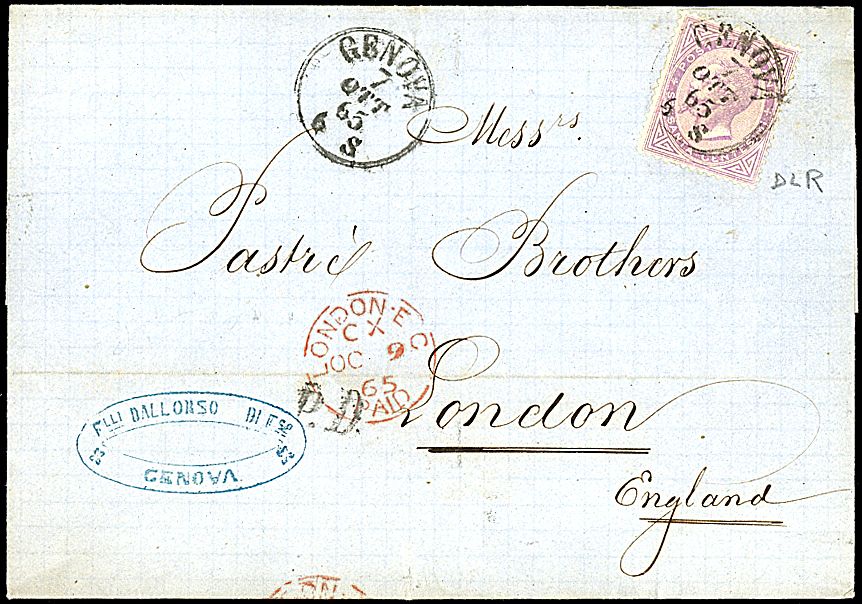 GENOVA
7
OTT
65
6 S
GENOVA
7
OTT
65
6 S
DLR
Mess.rs
Pastré Brothers
LONDON·E.C
CX
OC 9
65
PAID
P.D.
London
England
FLLI DALLORSO DI
GENOVA